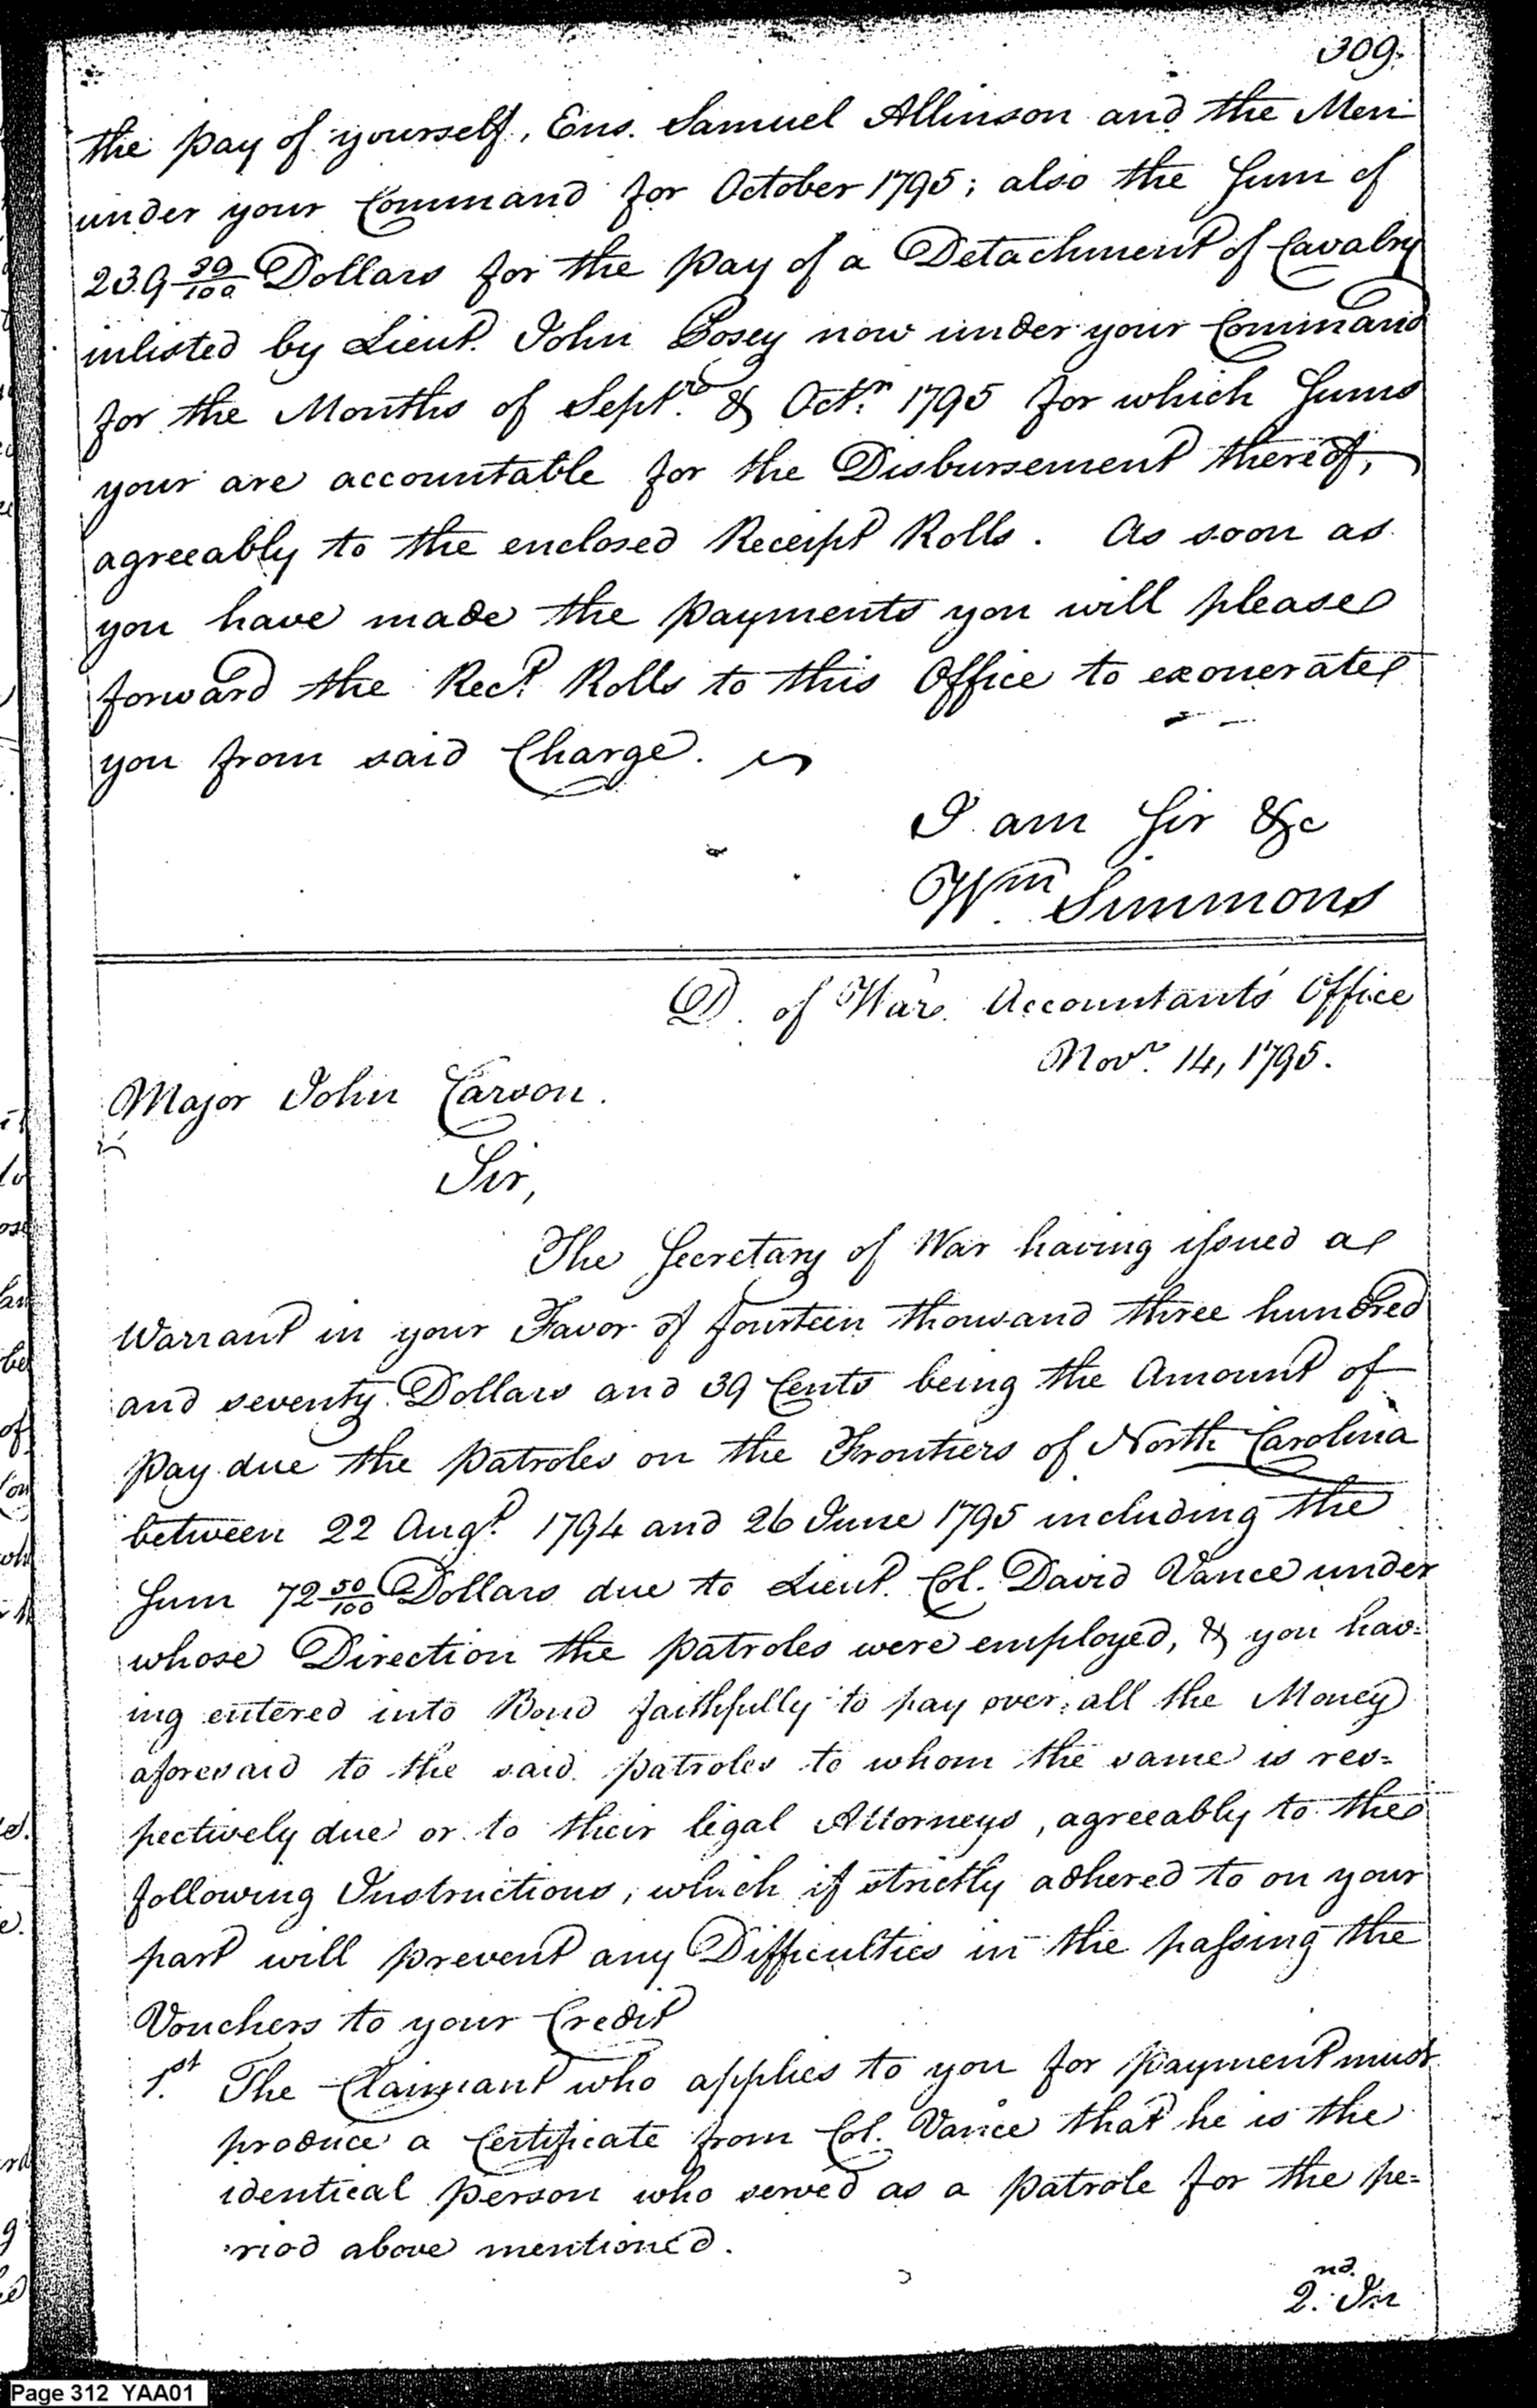 309.
the pay of yourself, Ens. Samuel Allinson and the Men
under your Command for October 1795; also the Sum of
239 39/100 Dollars for the pay of a Detachment of Cavalry
inlisted by Lieut. John Posey now under your Command
for the Months of Sept.r & Oct.r 1795 for which Sums
your are accountable for the Disbursement thereof,
agreeably to the enclosed Receipt Rolls. As soon as
you have made the payments you will please
forward the Rec.t Rolls to this Office to exonerate
you from said Charge.
I am Sir &c
Wm Simmons
D. of War. Accountants Office
Nov.r 14, 1795.
Major John Carson.
Sir,
The Secretary of War having issued a
Warrant in your Favor of fourteen thousand three hundred
and seventy Dollars and 39 Cents being the Amount of
pay due the patroles on the Frontiers of North Carolina
between 22 Aug.t 1794 and 26 June 1795 including the
Sum 72 50/100 Dollars due to Lieut. Col. David Vance under
whose Direction the patroles were employed, & you hav=
ing entered into Bond faithfully to pay over all the Money
aforesaid to the said patroles to whom the same is res=
pectively due or to their legal Attorneys, agreeably to the
following Instructions, which if strictly adhered to on your
part will prevent any Difficulties in the passing the
Vouchers to your Credit
1.st The Claimant who applies to you for payment must
produce a Certificate from Col. Vance that he is the
identical person who served as a patrole for the pe=
riod above mentioned.
2.nd In
Page 312 YAA01